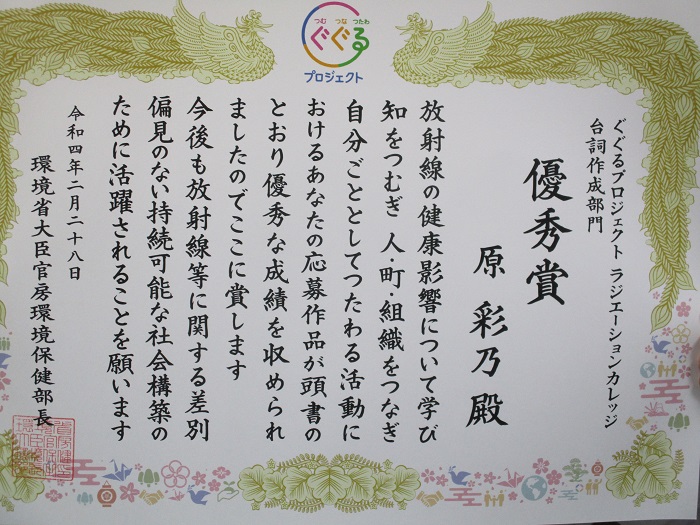 つむ つな つたわ
ぐぐる
プロジェクト
ぐぐるプロジェクト ラジエーションカレッジ
台詞作成部門
優秀賞
原 彩乃 殿
放射線の健康影響について学び
知をつむぎ 人・町・組織をつなぎ
自分ごととしてつたわる活動に
おけるあなたの応募作品が頭書の
とおり優秀な成績を収められ
ましたのでここに賞します
今後も放射線等に関する差別
偏見のない持続可能な社会構築の
ために活躍されることを願います
令和四年二月二十八日
環境省大臣官房環境保健部長